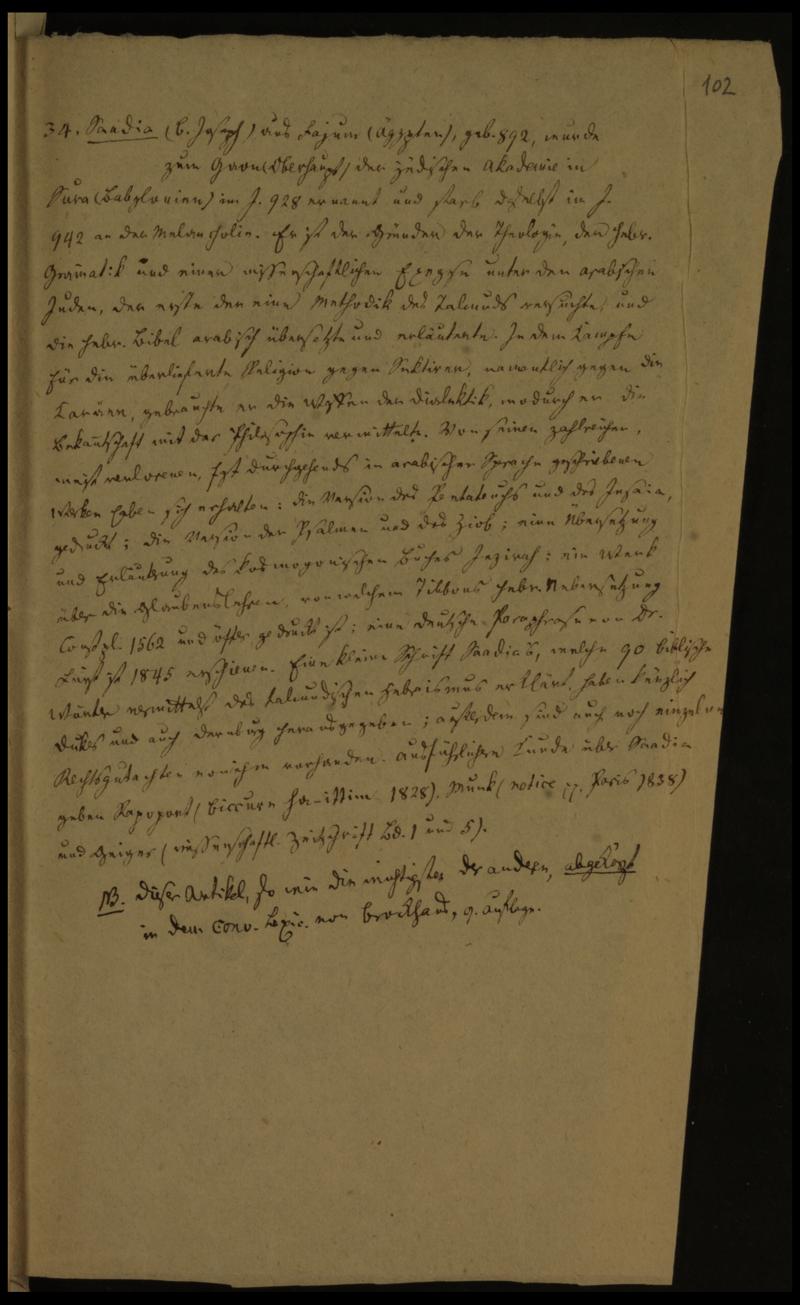 102
34. Saadia (b. Joseph) aus Fajum (Ägypten), geb. 892, wurde
zum Gaon (Oberhaupt) der jüdischen Akademie in
Sura (Babylonien) im J. 928 ernannt und starb daselbst im J.
942 an der Melancholie. Er ist der Gründer der Theologie, der hebr.
Grammatik und einer wissenschaftlichen Exegese unter den arabischen
Juden, der erste der eine Methodik des Talmuds versuchte, und
die hebr. Bibel arabisch übersetzte und erläuterte. In dem Kampfe
für die überlieferte Religion gegen Sektirer, namentlich gegen die
Karäer, gebrauchte er die Waffen der Dialektik, wodurch er die
Bekanntschaft mit der Philosophie vermittelte. Von seinen zahlreichen,
meist verlorenen, fast durchgehends in arabischer Sprache geschriebenen
Werken haben sich erhalten: die Version des Pentateuchs und des Jesaia,
gedruckt; die Version der Psalmen und des Hiob; eine Übersetzung
und Erläuterung des kosmogonischen Buches Jezirah; ein Werk
über die Glaubenslehren, von welchem Tibbons hebr. Uebersetzung
Constpl. 1562 und öfter gedruckt ist; eine deutsche Paraphrase von Dr.
Fürst ist 1845 erschienen. Eine kleine Schrift Saadia's, welche 90 biblische
Wörter vermittels des talmudischen Hebraismus erklärt, haben kürzlich
Dukes und auch Dernburg herausgegeben; außerdem sind auch noch einzelne
Rechtsgutachten von ihm vorhanden. Ausführlichere Kunde über Saadia
geben Rapoport (Biccure ha-ittim 1828), Munk (notice pp. Paris 1838)
und Geiger (wissenschaftl. Zeitschrift Bd. 1 und 5).
NB. Dieser Artikel, so wie die wichtigsten der andern, abgekürzt
in dem Conv. Lexic. von Brockhaus, 9. Auflage.